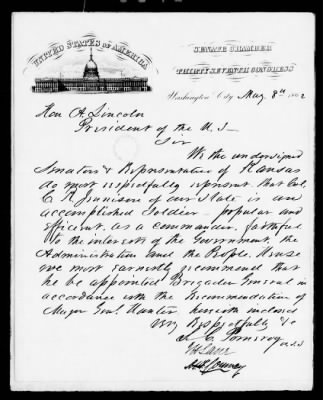 UNITED STATES OF AMERICA
SENATE CHAMBER
THIRTY SEVENTH CONGRESS
Washington City May 8th 1862
Hon A. Lincoln
President of the U.S
Sir
We the undersigned
Senators & Representative of Kansas
do most respectfully represent that Col.
C. R. Jennison of our State is an
accomplished Soldier - popular and
efficient, as a commander, faithful
to the interests of the Government, the
Administration and the People. Hence
we most earnestly recommend that
he be appointed Brigadier General in
accordance with the Recommendation of
Major Genl. Hunter, herewith inclosed
Very Respectfully &c
S. C. Pomeroy
J H Lane
M F Conway